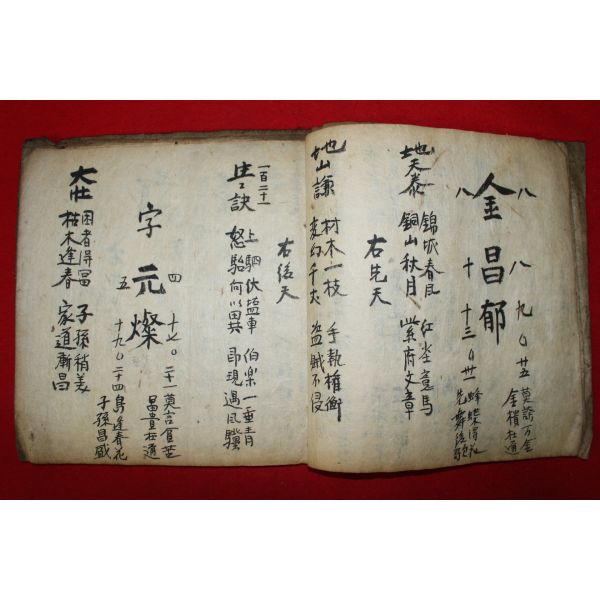 八 八 九〇 廿五 万金
金昌郁
八 十 十三〇 卅一 蜂蝶得花
先舞後歌
地天泰 錦城春日 紅 馬
銅山秋月 紫府文章
右先天
地山謙 材木一枝 手執權衡
千丈 盜賊不侵
右後天
一百二十一
訣 上駟伏塩車 伯樂一垂青
怒駘何以 即現過风驥
四 十七〇 二十一 莫言貧苦
貴在道
字元燦
五 十九〇 二十四 島逢春花
子孫昌盛
大壯 困者得富 子孫稍美
枯木逢春 家道漸昌